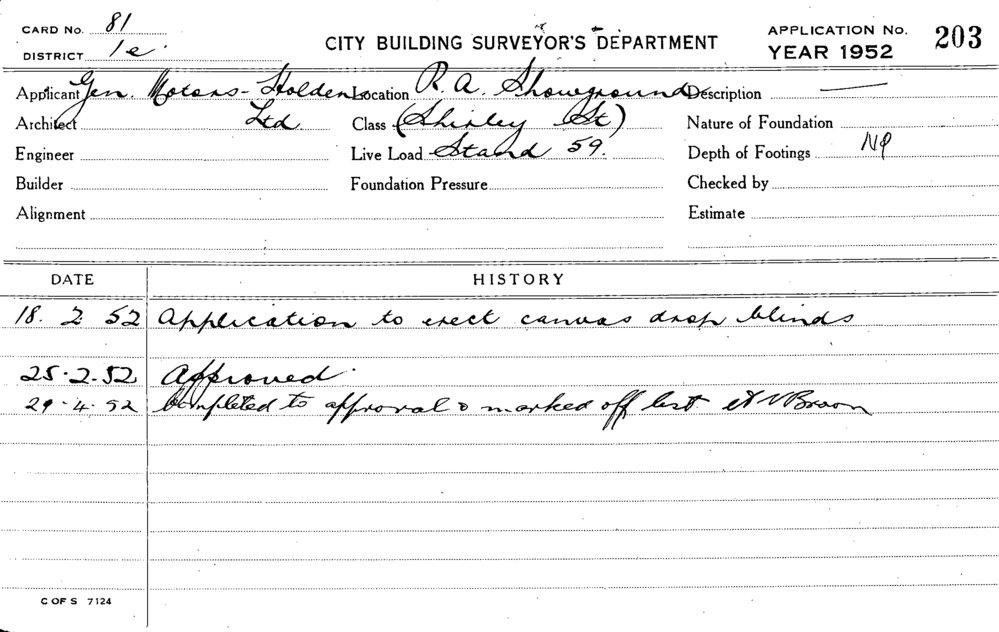 CARD No. 81
DISTRICT 1e
CITY BUILDING SURVEYOR'S DEPARTMENT
APPLICATION No. 203
YEAR 1952
Applicant Gen. Motors-Holdens Location R.A. Showground Description —
Architect Ltd. Class (Shirley St) Nature of Foundation
Engineer Live Load Stand 59. Depth of Footings
Builder Foundation Pressure Checked by
Alignment Estimate
DATE HISTORY
18. 2 52 Application to erect canvas drop blinds
25.2.52 Approved.
29.4.52 Completed to approval & marked off list
C OF S 7124